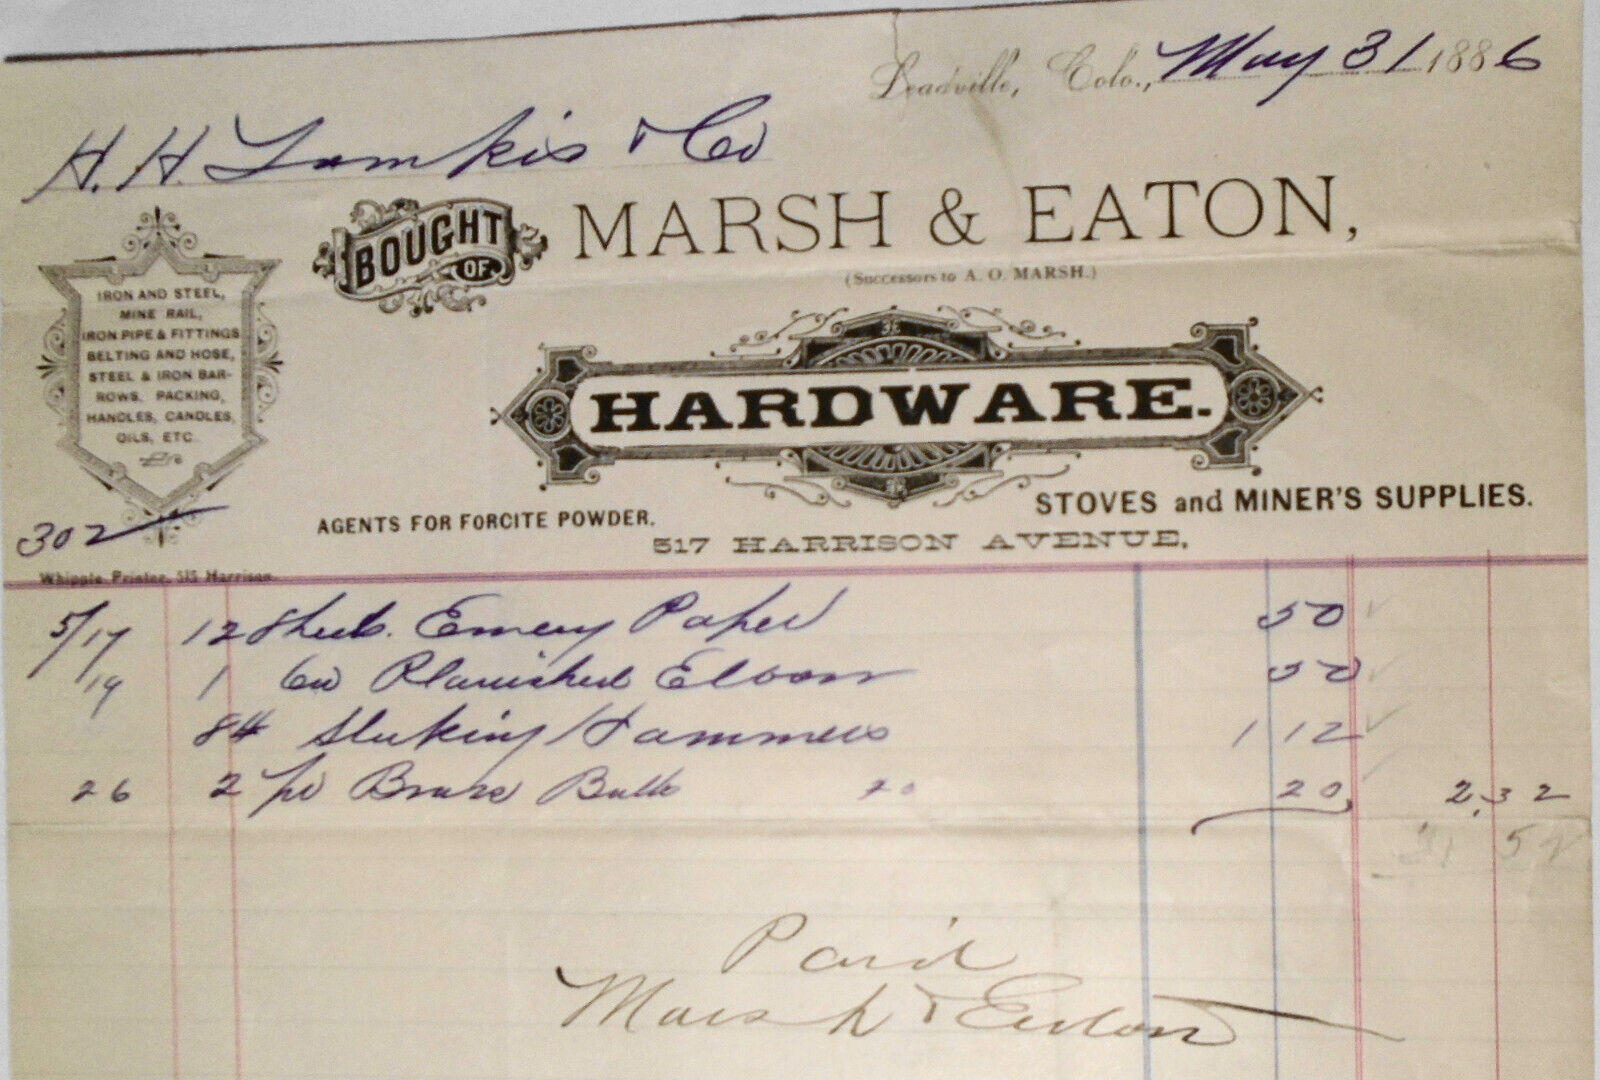 Leadville, Colo., May 31 1886
H. H. Tomkis & Co
BOUGHT OF
MARSH & EATON,
(Successors to A. O. MARSH.)
IRON AND STEEL,
MINE RAIL,
IRON PIPE & FITTINGS
BELTING AND HOSE,
STEEL & IRON BAR-
ROWS, PACKING,
HANDLES, CANDLES,
OILS, ETC.
HARDWARE.
STOVES and MINER'S SUPPLIES.
AGENTS FOR FORCITE POWDER.
517 HARRISON AVENUE,
302
Whipple Printer, 515 Harrison.
5/17 12 Sheets Emery Paper 50
19 1 6in Planished Elbow 50
8# Striking Hammers 1 12
26 2 Brass Butts 20 20 2.32
Paid
Marsh & Eaton